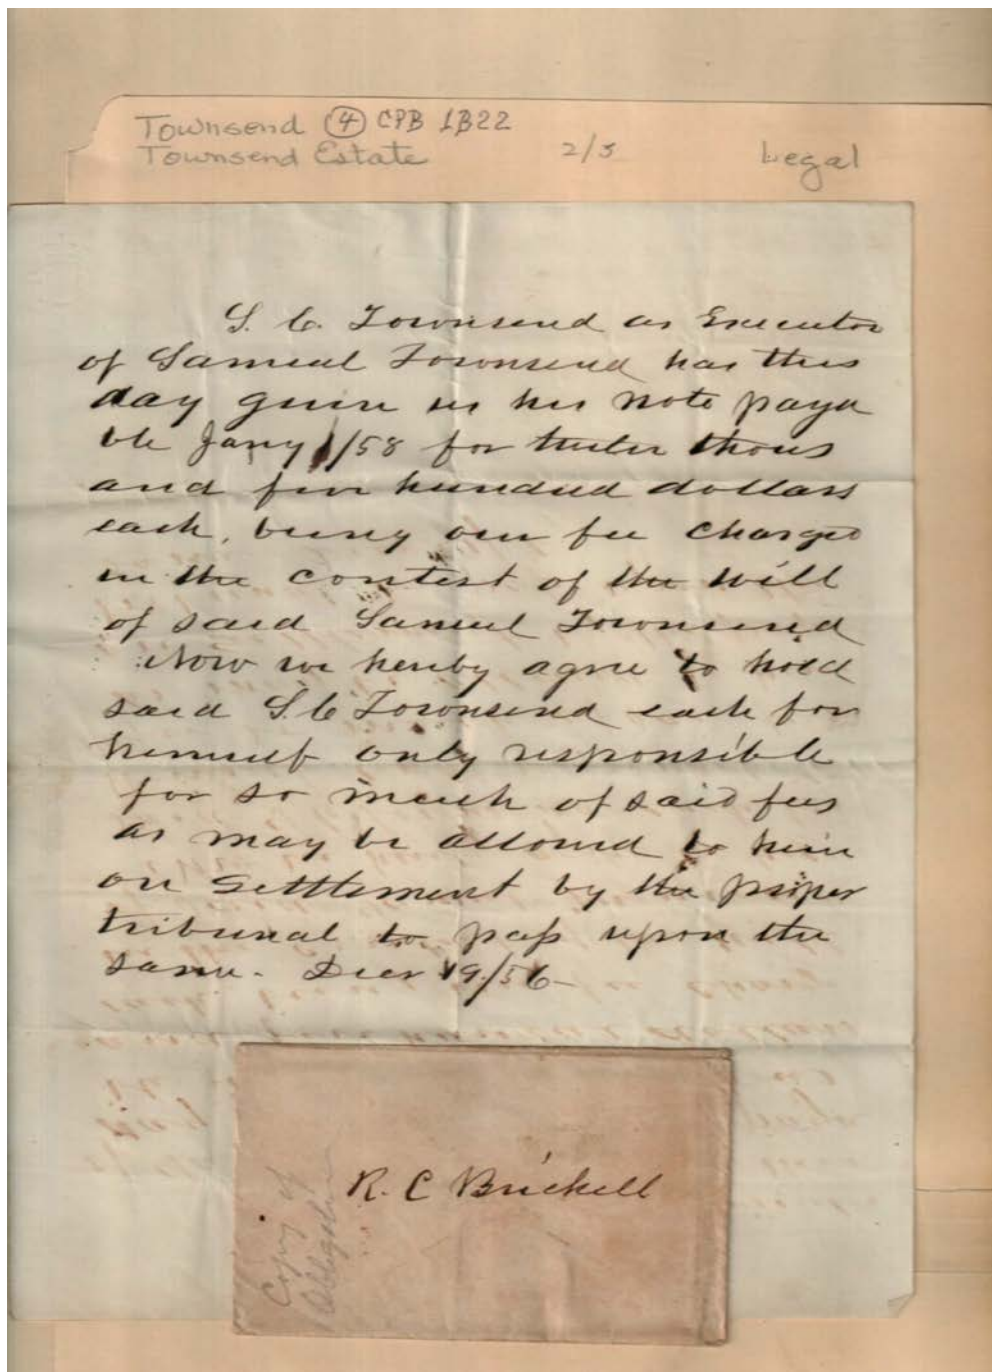 Townsend 4 CPB 1B22
Townsend Estate 2/3 Legal
S. C. Townsend as Executor
of Samuel Townsend has this
day given us his note paya
ble Jany 1/58 for twelve thous
and five hundred dollars
each, being our fee charged
in the contest of the will
of said Samuel Townsend
Now we hereby agree to hold
said S. C Townsend each for
himself only responsible
for so much of said fees
as may be allowed to him
on settlement by the proper
tribunal to pass upon the
same. Decr 19/56-
R. C Brickell
Copy of
Obligation